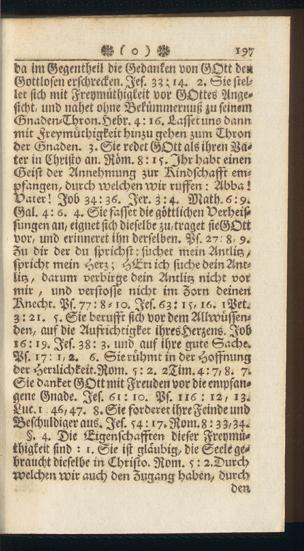 ❋ ( 0 ) ❋ 197
da im Gegentheil die Gedanken von GOtt den
Gottlosen erschrecken. Jes. 33: 14. 2. Sie stel-
let sich mit Freymüthigkeit vor GOttes Ange-
sicht, und nahet ohne Bekümmernuß zu seinem
Gnaden-Thron. Hebr. 4: 16. Lasset uns dann
mit Freymüthigkeit hinzu gehen zum Thron
der Gnaden. 3. Sie redet GOtt als ihren Va-
ter in Christo an. Röm. 8: 15. Ihr habt einen
Geist der Annehmung zur Kindschafft em-
pfangen, durch welchen wir ruffen: Abba!
Vater! Job 34: 36. Jer. 3: 4. Math. 6: 9.
Gal. 4: 6. 4. Sie fasset die göttlichen Verheis-
sungen an, eignet sich dieselbe zu, traget sie GOtt
vor, und erinneret ihn derselben. Ps. 27: 8, 9.
Zu dir der du sprichst: suchet mein Antlitz,
spricht mein Herz; HErr ich suche dein Ant-
litz, darum verbirge dein Antlitz nicht vor
mir, und verstosse nicht im Zorn deinen
Knecht. Ps. 77: 8-10. Jes. 63: 15, 16. 1 Pet.
3: 21. 5. Sie berufft sich vor dem Allwüssen-
den, auf die Aufrichtigket ihres Herzens. Job
16: 19. Jes. 38: 3. und auf ihre gute Sache.
Ps. 17: 1, 2. 6. Sie rühmt in der Hoffnung
der Herlichkeit. Rom. 5: 2. 2 Tim. 4: 7, 8. 7.
Sie danket GOtt mit Freuden vor die empfan-
gene Gnade. Jes. 61: 10. Ps. 116: 12, 13.
Luc. 1. 46, 47. 8. Sie forderet ihre Feinde und
Beschuldiger aus. Jes. 54: 17. Rom. 8: 33, 34.
§. 4. Die Eigenschafften dieser Freymü-
thigkeit sind: 1. Sie ist gläubig, die Seele ge-
braucht dieselbe in Christo. Rom. 5: 2. Durch
welchen wir auch den Zugang haben, durch
den